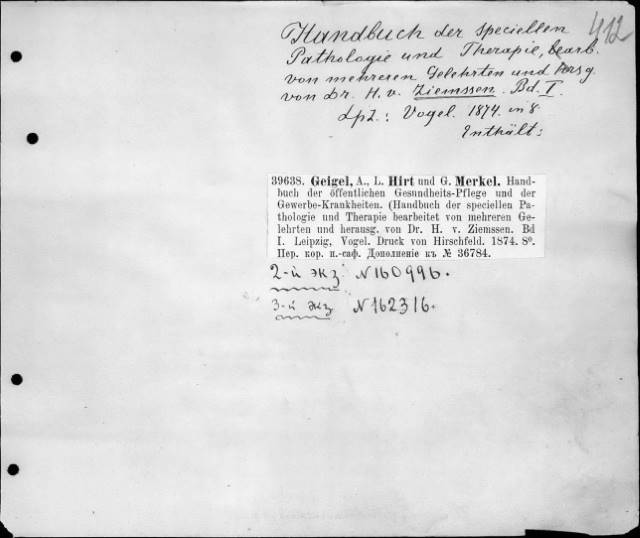 412
Handbuch der speciellen
Pathologie und Therapie, bearb.
von mehreren Gelehrten und hersg.
von Dr. H. v. Ziemssen. Bd. I.
Lpz.: Vogel. 1874. in 8.
Enthält:
39638. Geigel, A., L. Hirt und G. Merkel. Hand-
buch der öffentlichen Gesundheits-Pflege und der
Gewerbe-Krankheiten. (Handbuch der speciellen Pa-
thologie und Therapie bearbeitet von mehreren Ge-
lehrten und herausg. von Dr. H. v. Ziemssen. Bd
I. Leipzig, Vogel. Druck von Hirschfeld. 1874. 8º.
Пер. кор. н.-саф. Дополненіе къ № 36784.
2-й экз. N160996.
3-й экз N162316.